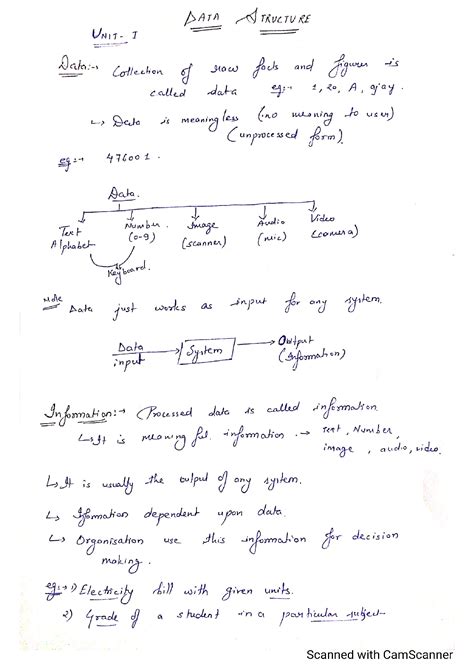 DATA STRUCTURE
UNIT-I
Data:→ Collection of raw facts and figures is
called data eg:→ 1, 20, A, ajay.
↳ Data is meaningless (no meaning to user)
(unprocessed form).
eg:→ 476001.
Data.
Text Number Image Audio Video
Alphabet (0-9) (scanner) (mic) (camera)
Keyboard.
Note Data just works as input for any system.
Data input → System → Output
(Information)
Information:→ Processed data is called information
↳ It is meaning ful information → text, Number,
image, audio, video.
↳ It is usually the output of any system.
↳ Ifomation dependent upon data.
↳ Organisation use this information for decision
making.
eg:→ 1) Electricity bill with given units.
2) Grade of a student in a particular subject
Scanned with CamScanner